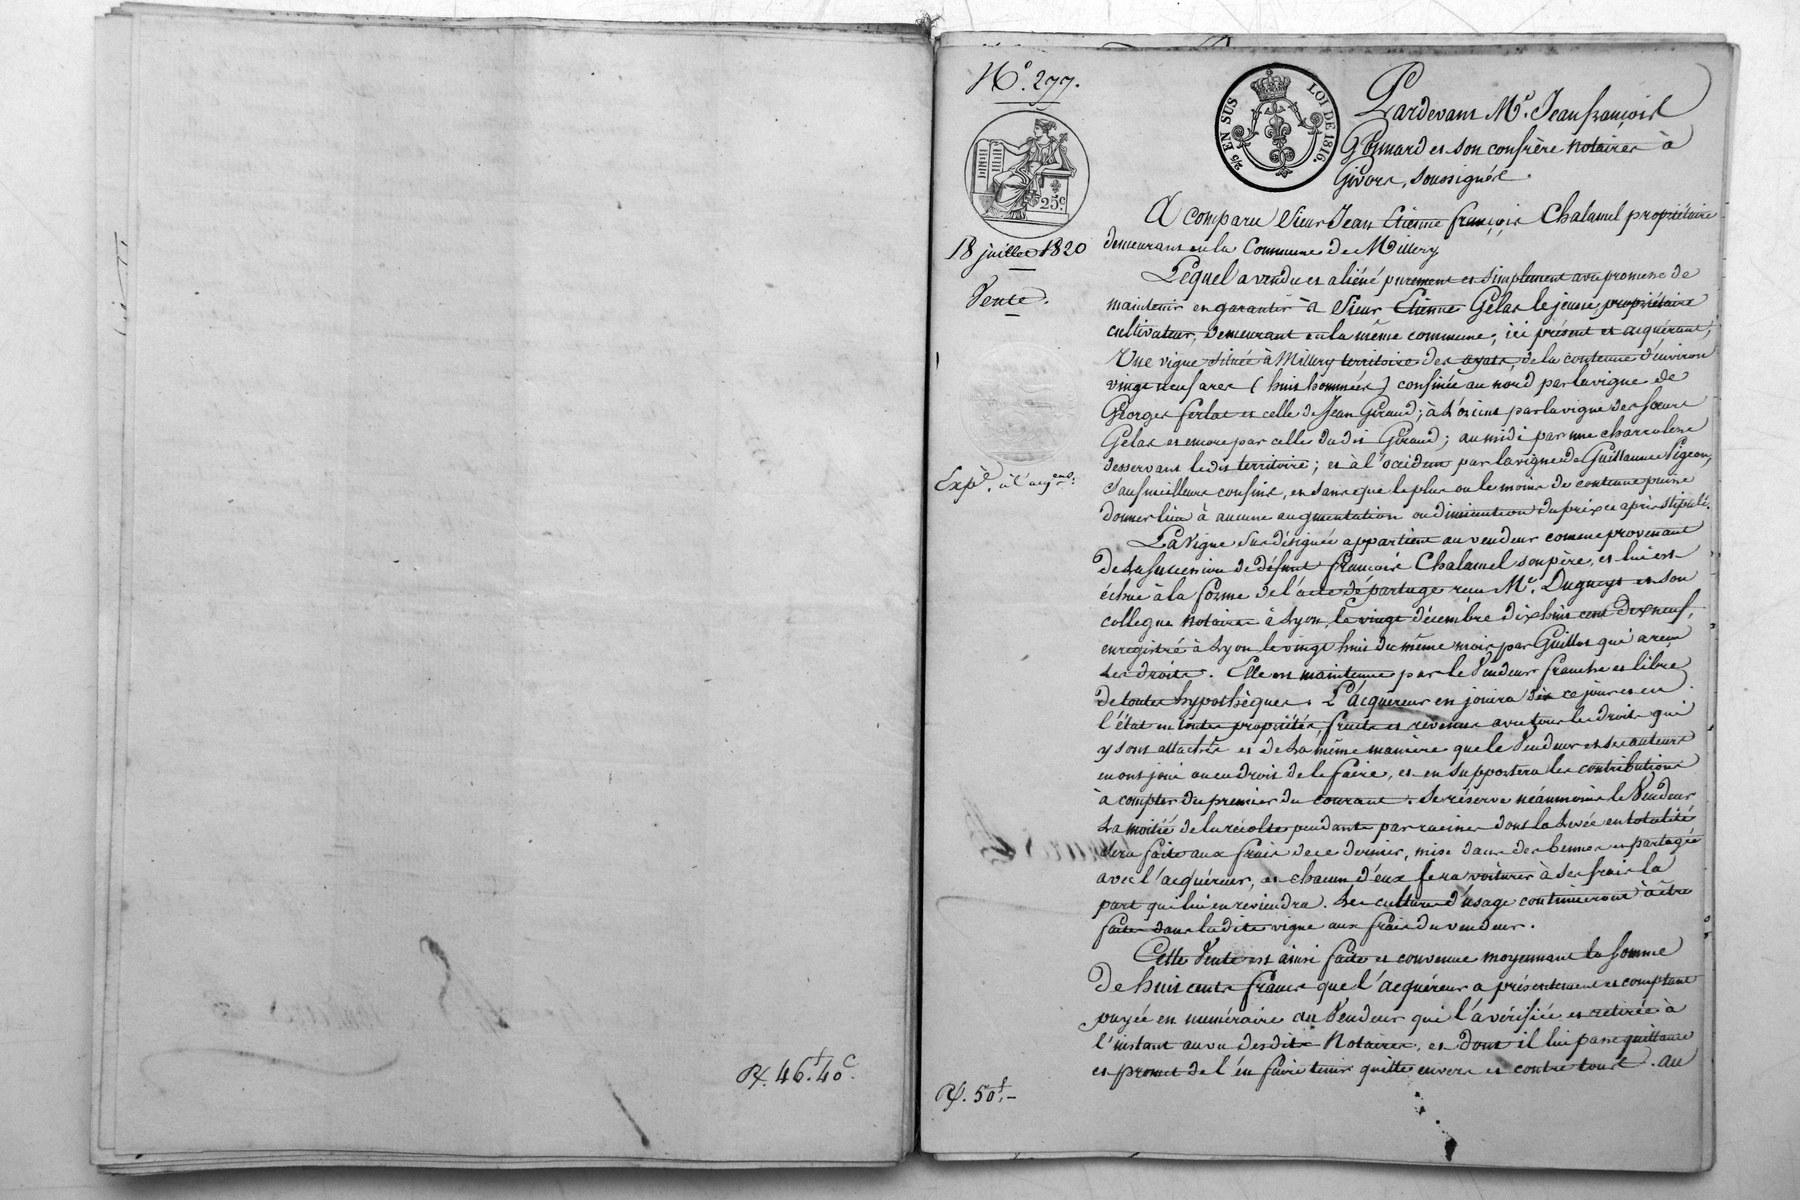 Rx. 46f. 40c.
No. 277.
25c
5/10 EN SUS LOI DE 1816.
18 juillet 1820
Vente.
Expée. à l'acqr
Rx. 50f. -
Pardevant Me. Jean françois
Gonnard et son confrère notaires à
Givors, soussignés.
A comparu Sieur Jean Etienne françois Chalamel propriétaire
demeurant en la Commune de Millery
Lequel a vendu et aliéné purement et simplement avec promesse de
maintenir et garantir à Sieur Etienne Gelas le jeune, propriétaire
cultivateur, demeurant en la même commune, ici présent et acquérant,
Une vigne située à Millery territoire des ayats, de la contenue d'environ
vingt neuf ares (huit hommées) confinée au nord par la vigne de
Georges ferlat et celle de Jean Giraud; à l'orient par la vigne des sœurs
Gelas et encore par celle du dit Giraud; au midi par une charrolerie
desservant le dit territoire; et à l'occident par la vigne de Guillaume Pigeon,
sauf meilleurs confins, et sans que le plus ou le moins de contenue puisse
donner lieu à aucune augmentation ou diminution du prix ci après stipulé.
La Vigne sus désignée appartient au vendeur comme provenant
de la succession de défunt françois Chalamel son père, et lui est
échue à la forme de l'acte de partage reçu Me. Dugueyt et son
collegue notaires à Lyon, le vingt décembre dix huit cent dix neuf,
enregistré à Lyon le vingt huit du même mois par Guillot qui a reçu
les droits. Elle est maintenue par le Vendeur franche et libre
de toutes hypothèques. L'acquéreur en jouira dès ce jour et en
l'état en toutes propriétés, fruits et revenus avec tous les droits qui
y sont attachés et de la même manière que le Vendeur et ses auteurs
en ont joui ou eu droit de le faire, et en supportera les contributions
à compter du premier du courant. Se réserve néanmoins le Vendeur
la moitié de la récolte pendante par racines dont la levée en totalité
sera faite aux frais de ce dernier, mise dans des bennes et partagée
avec l'acquéreur, et chacun d'eux fera voiturer à ses frais la
part qui lui en reviendra. Les cultures d'usage continueront à être
faites dans la dite vigne aux frais du vendeur.
Cette Vente est ainsi faite et convenue moyennant la somme
de huit cents francs que l'acquéreur a présentement et comptant
payée en numéraire au Vendeur qui l'a vérifiée et retirée à
l'instant au vu desdits Notaires, et dont il lui passe quittance
et promet de l'en faire tenir quitte envers et contre tous. Au